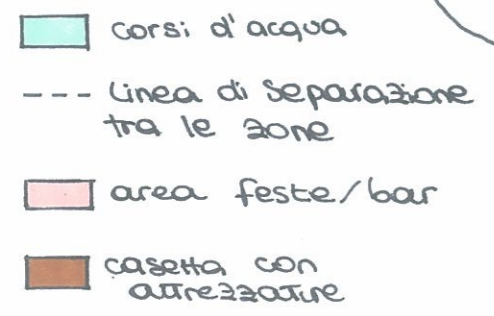 corsi d'acqua
linea di separazione
tra le zone
area feste/bar
casetta con
attrezzature